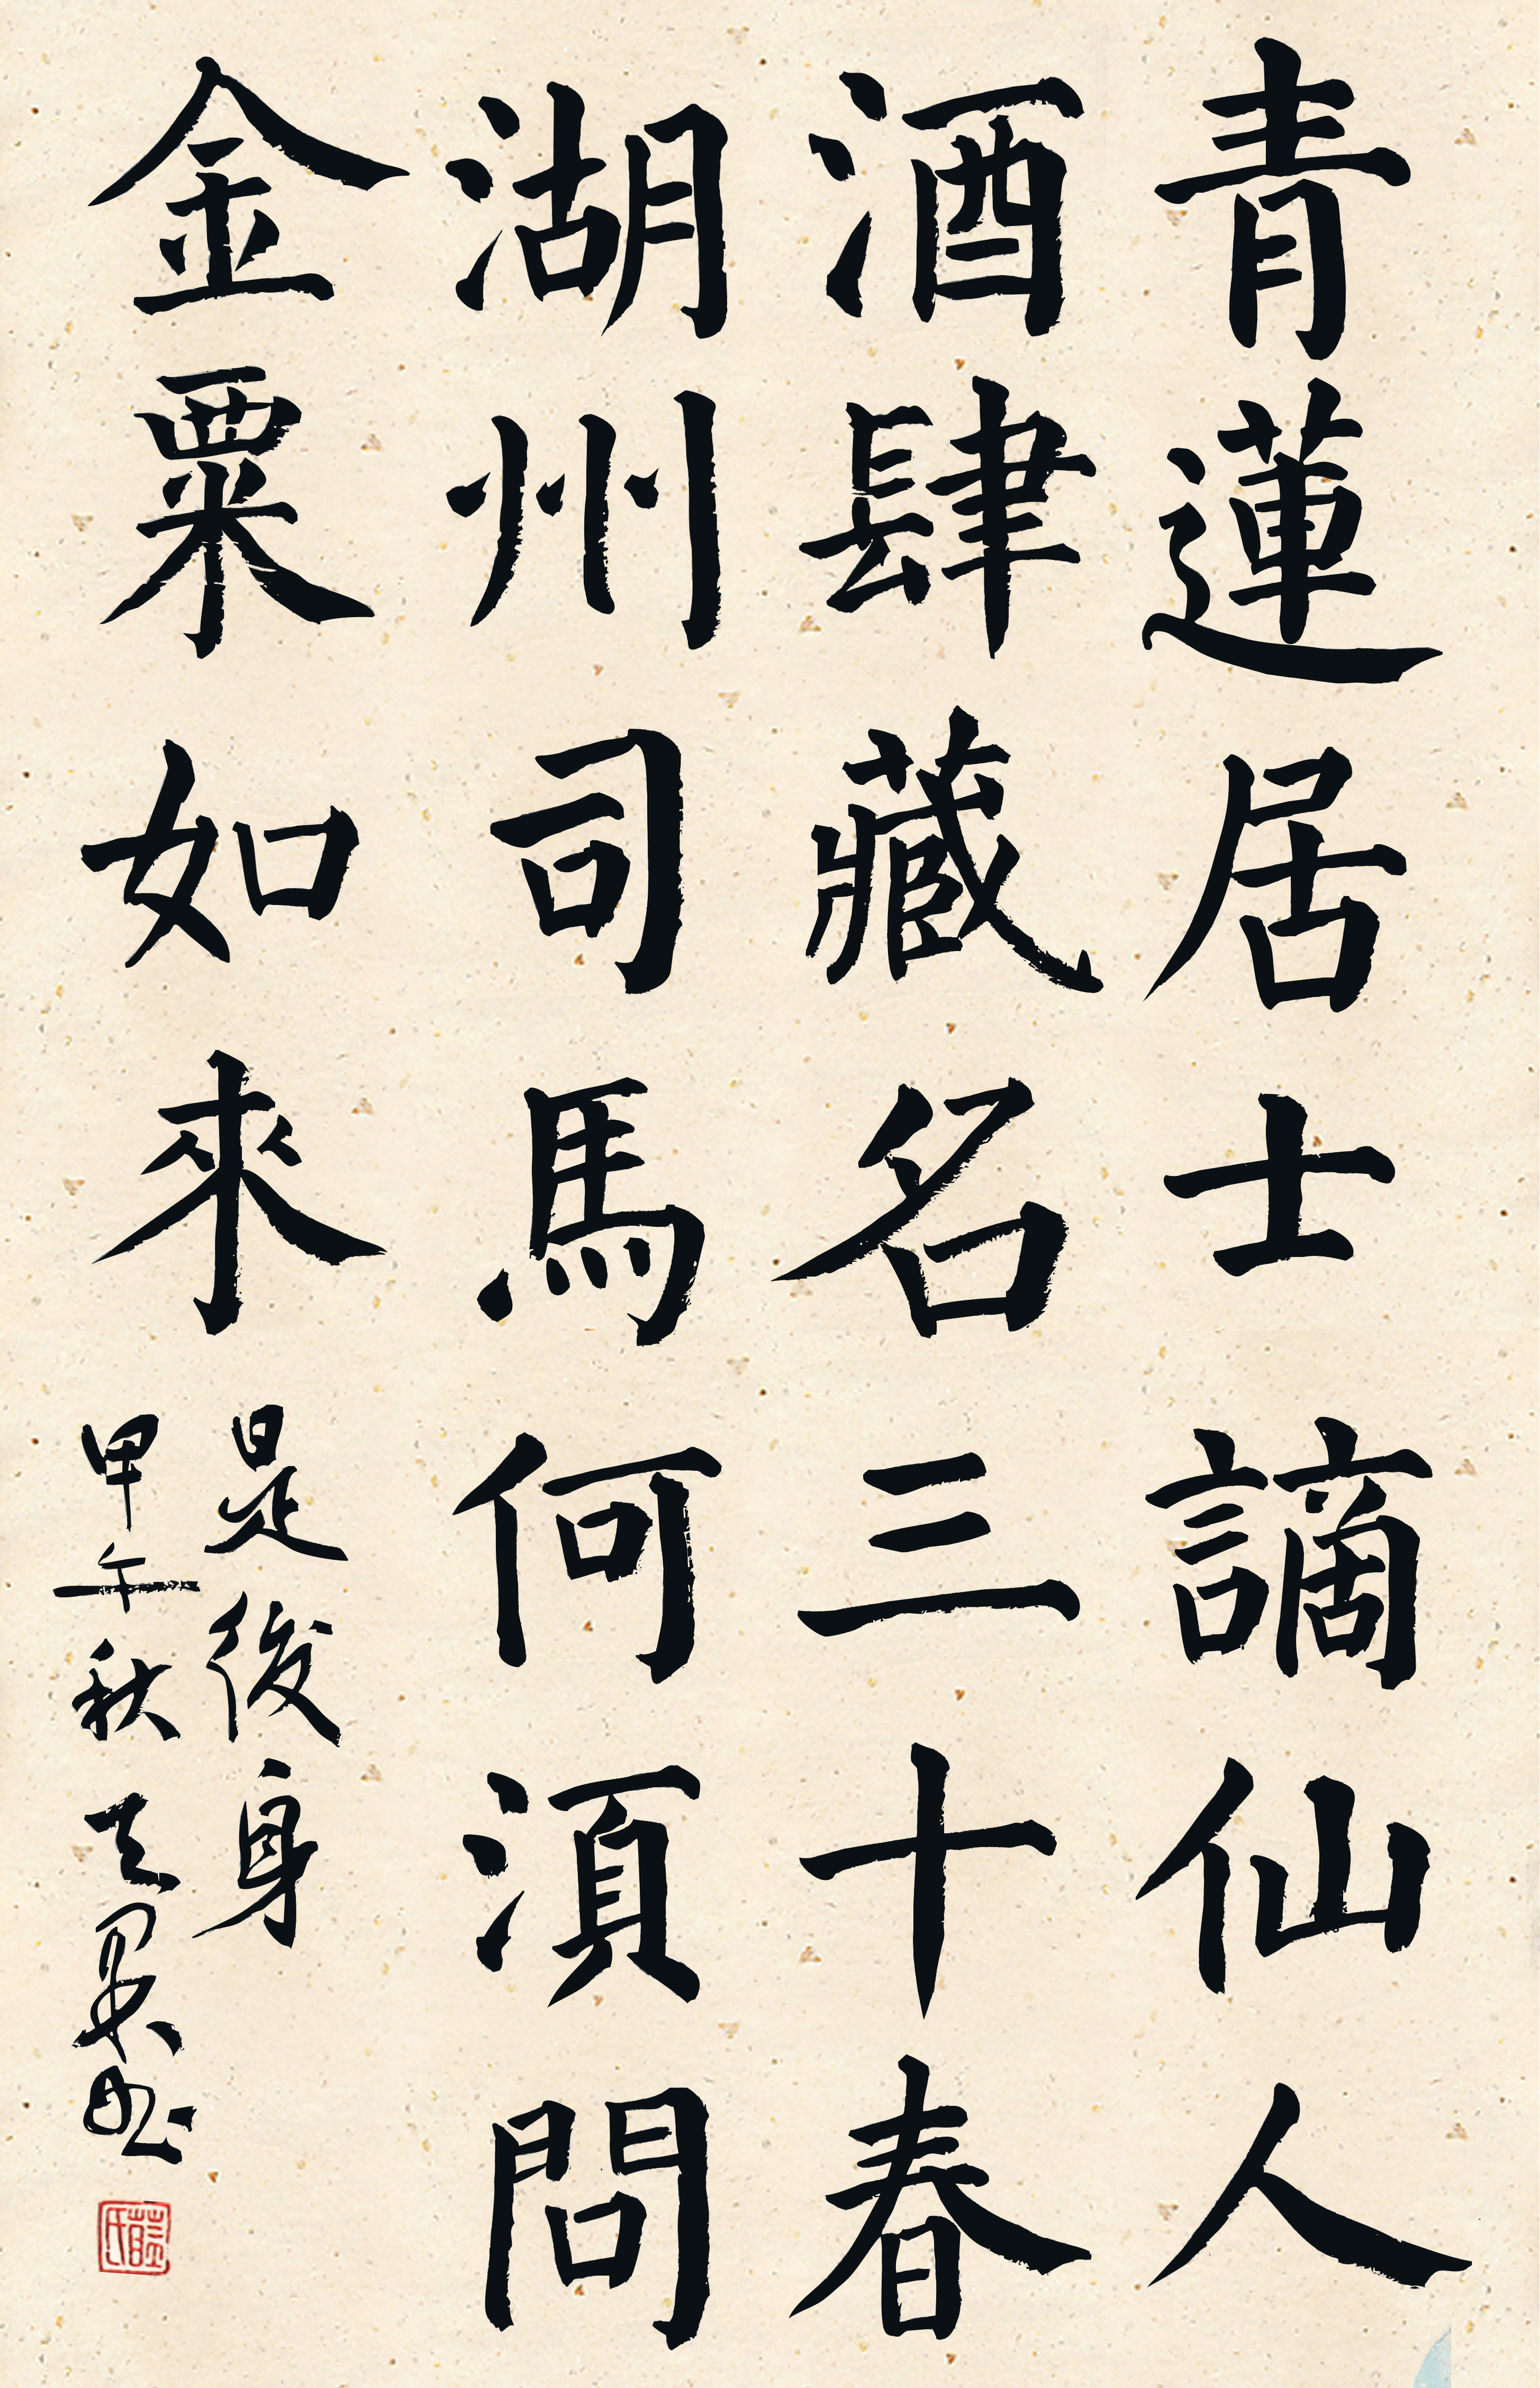 青蓮居士謫仙人
酒肆藏名三十春
湖州司馬何湏問
金粟如來
是後身
甲午秋